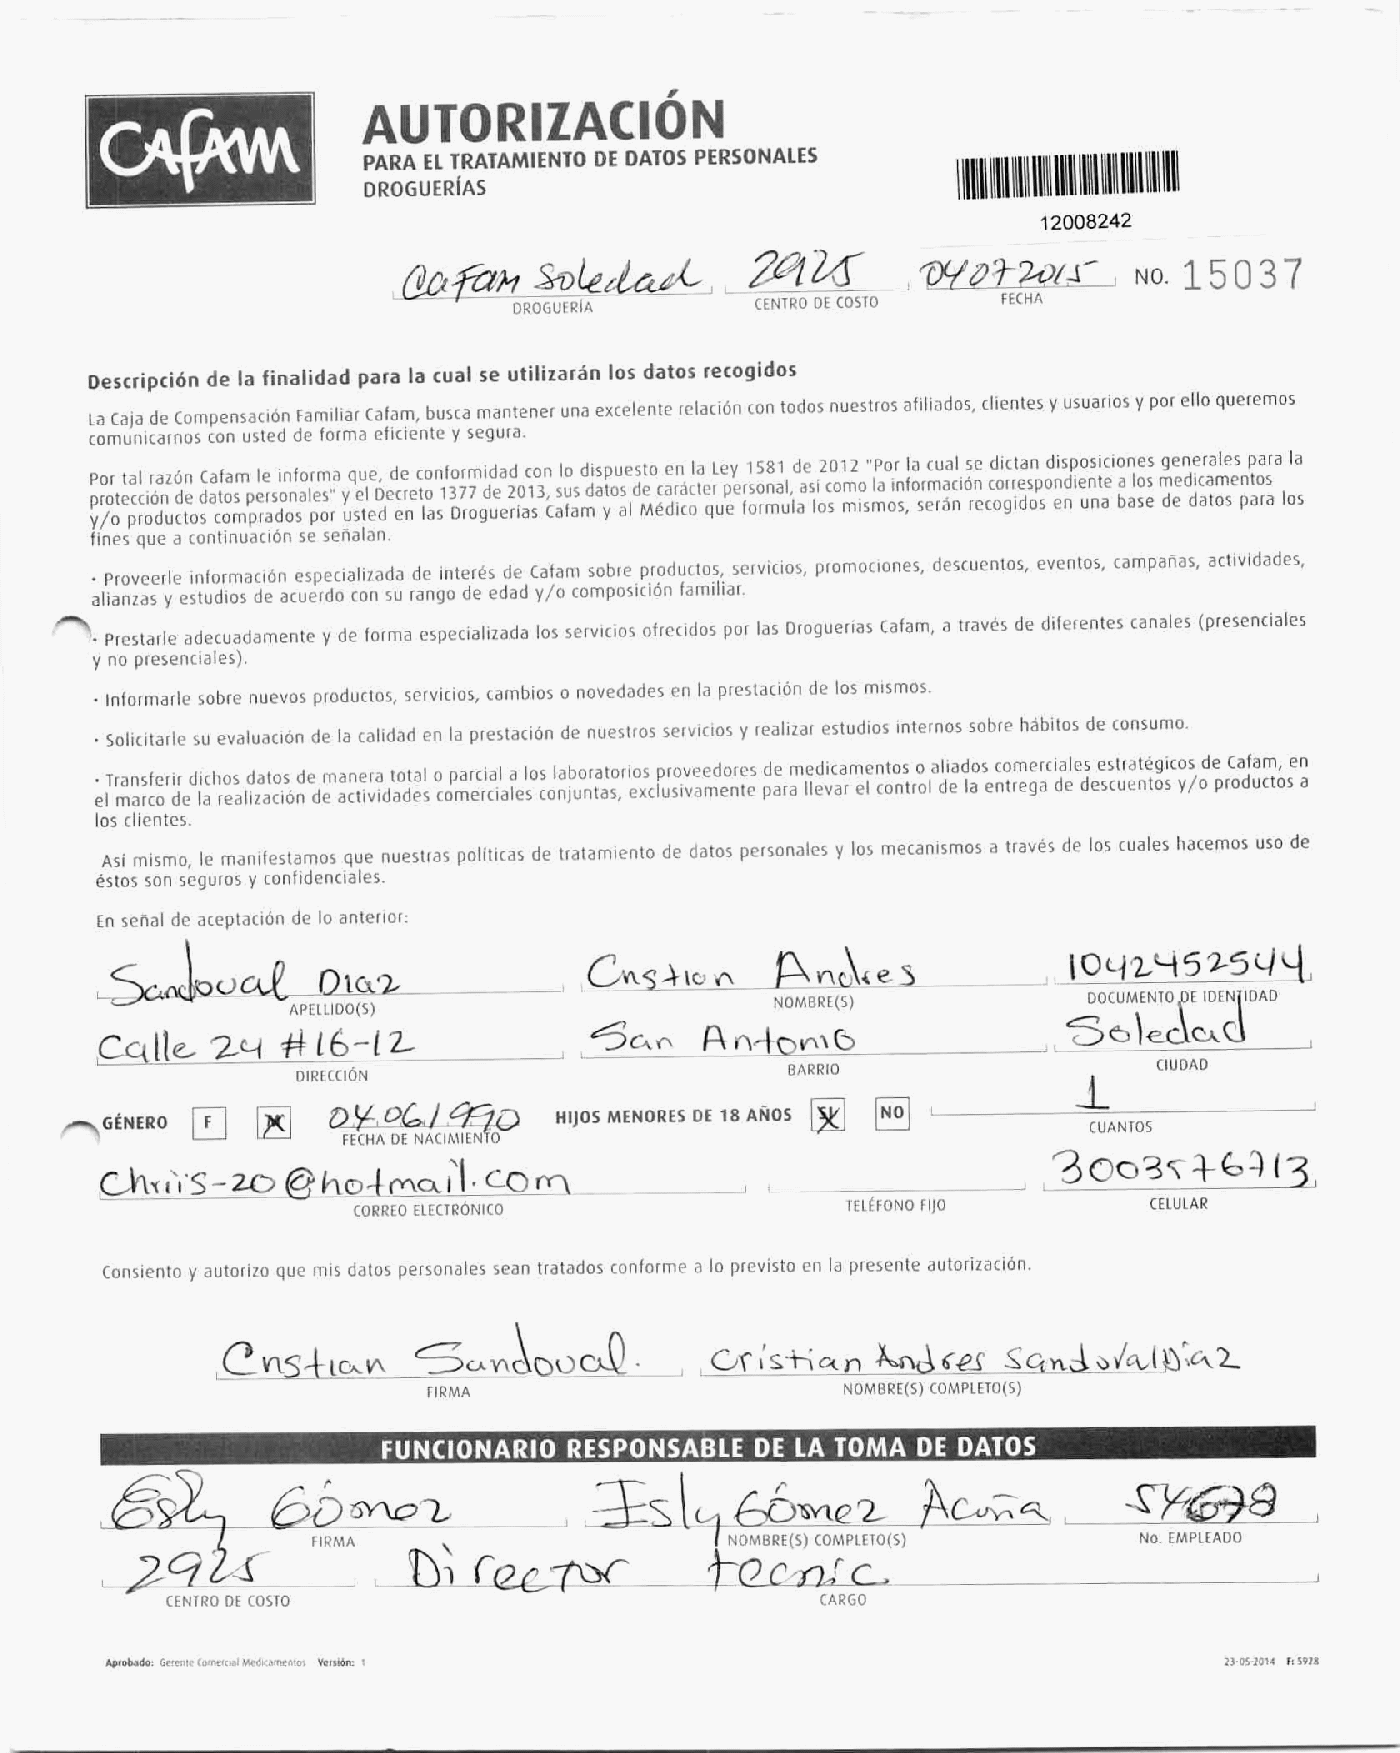 CAFAM
AUTORIZACIÓN
PARA EL TRATAMIENTO DE DATOS PERSONALES
DROGUERÍAS
12008242
Cafam Soledad 2925 04072015 NO. 15037
DROGUERÍA CENTRO DE COSTO FECHA
Descripción de la finalidad para la cual se utilizarán los datos recogidos
La Caja de Compensación Familiar Cafam, busca mantener una excelente relación con todos nuestros afiliados, clientes y usuarios y por ello queremos
comunicarnos con usted de forma eficiente y segura.
Por tal razón Cafam le informa que, de conformidad con lo dispuesto en la Ley 1581 de 2012 "Por la cual se dictan disposiciones generales para la
protección de datos personales" y el Decreto 1377 de 2013, sus datos de carácter personal, así como la información correspondiente a los medicamentos
y/o productos comprados por usted en las Droguerías Cafam y al Médico que formula los mismos, serán recogidos en una base de datos para los
fines que a continuación se señalan.
· Proveerle información especializada de interés de Cafam sobre productos, servicios, promociones, descuentos, eventos, campañas, actividades,
alianzas y estudios de acuerdo con su rango de edad y/o composición familiar.
· Prestarle adecuadamente y de forma especializada los servicios ofrecidos por las Droguerías Cafam, a través de diferentes canales (presenciales
y no presenciales).
· Informarle sobre nuevos productos, servicios, cambios o novedades en la prestación de los mismos.
· Solicitarle su evaluación de la calidad en la prestación de nuestros servicios y realizar estudios internos sobre hábitos de consumo.
· Transferir dichos datos de manera total o parcial a los laboratorios proveedores de medicamentos o aliados comerciales estratégicos de Cafam, en
el marco de la realización de actividades comerciales conjuntas, exclusivamente para llevar el control de la entrega de descuentos y/o productos a
los clientes.
Así mismo, le manifestamos que nuestras políticas de tratamiento de datos personales y los mecanismos a través de los cuales hacemos uso de
éstos son seguros y confidenciales.
En señal de aceptación de lo anterior:
Sandoval Diaz Cristian Andres 1042452544
APELLIDO(S) NOMBRE(S) DOCUMENTO DE IDENTIDAD
Calle 24 #16-12 San Antonio Soledad
DIRECCIÓN BARRIO CIUDAD
GÉNERO F 04.06.1990 HIJOS MENORES DE 18 AÑOS NO 1
FECHA DE NACIMIENTO CUANTOS
Chriis-20@hotmail.com 3003576713
CORREO ELECTRÓNICO TELÉFONO FIJO CELULAR
Consiento y autorizo que mis datos personales sean tratados conforme a lo previsto en la presente autorización.
Cristian Sandoval. Cristian Andres Sandoval Diaz
FIRMA NOMBRE(S) COMPLETO(S)
FUNCIONARIO RESPONSABLE DE LA TOMA DE DATOS
Gómez Isly Gómez Acuña 54678
FIRMA NOMBRE(S) COMPLETO(S) No. EMPLEADO
2925 Director tecnic.
CENTRO DE COSTO CARGO
Aprobado: Gerente Comercial Medicamentos Versión: 1 23-05-2014 F: 5928